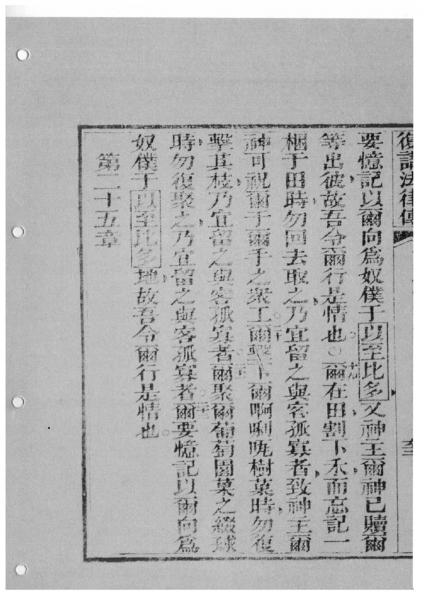 復講法律傳
要憶記以爾向爲奴僕于以至比多又神王爾神已贖爾
等出彼故吾令爾行是情也○十九爾在田割下禾而忘記一
梱于田時勿回去取之乃宜留之與客孤寡者致神王爾
神可祝爾于爾手之衆工爾擊下爾啊唎樹菓時勿復
擊其枝乃宜留之與客孤寡者爾聚爾葡萄園菓之綴球
時勿復聚之乃宜留之與客孤寡者爾要憶記以爾向爲
奴僕于以至比多地故吾令爾行是情也
第二十五章